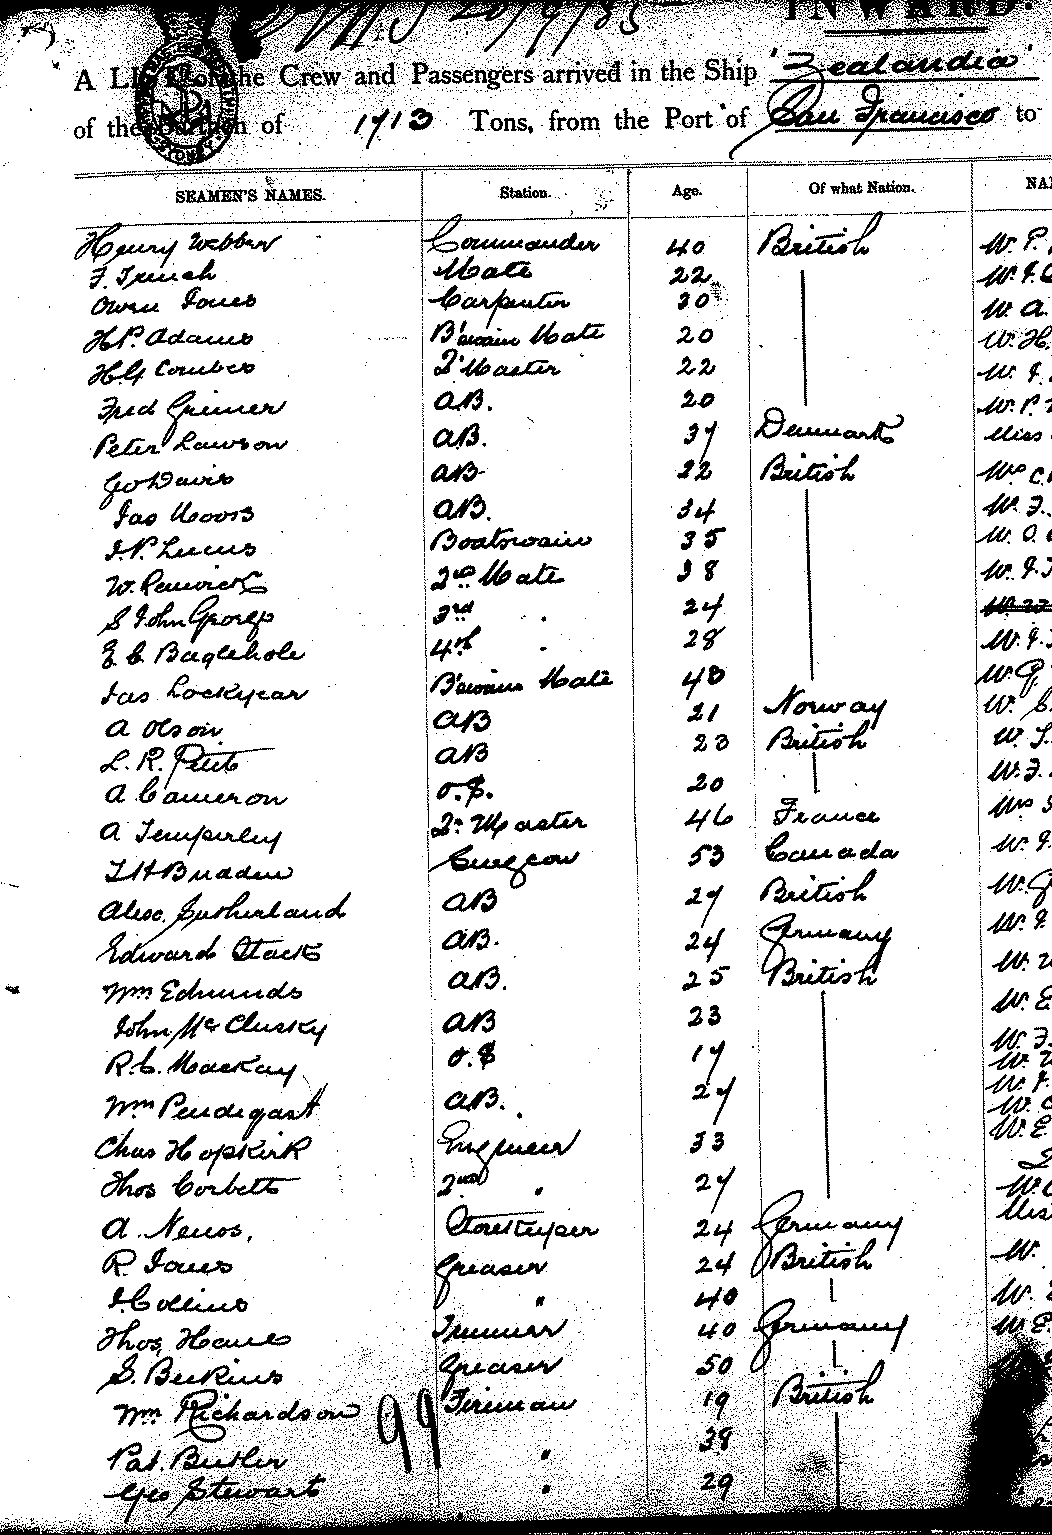 INWARD.
A LIST of the Crew and Passengers arrived in the Ship 'Zealandia'
of the Burthen of 1713 Tons, from the Port of San Francisco to
SEAMEN'S NAMES. Station. Age. Of what Nation. NA
Henry Webber Commander 40 British W. P.
F. French Mate 22 W. J. C
Owen Jones Carpenter 30 W. A.
H P. Adams B'swain Mate 20 W. H.
H G Combes Q' Master 22 W. J.
Fred Grimer A.B. 20 W. P.
Peter Lawson A.B. 37 Denmark Miss
Geo Davis AB 22 British C.
Jas Moors A.B. 34 W. F.
J. P. Lucus Boatswain 35 W. O.
W. Renwick 2nd Mate 38 W. J.
S John George 3rd " 24
E. C Baglehole 4th " 28 W. J.
Jas Lockyear B'swains Mate 48 W. G
A Olson AB 21 Norway W. C
L. R. Petit AB 23 British W. S.
A Cameron O.S. 20 W. F.
A Temperley Qr Master 46 France Mrs
T H Braden Surgeon 53 Canada W. J.
Alex. Sutherland AB 27 British W. G
Edward Stack AB. 24 Germany W. J.
Wm Edmunds A.B. 25 British W.
John McClusky AB 23 W. E
R. C. Mackay O.S 17 W. F.
Wm Pendegast A.B. 27 W. J.
Chas Hopkirk Engineer 33 W. E
Thos Corbett 2nd " 27 W.
A. Nenos. Storekeeper 24 Germany Miss
R. Jones Greaser 24 British W.
J. Collins " 40 W.
Thos. Hanes Trimmer 40 Germany W. E.
S. Beekins Greaser 50
Wm Richardson 99 Fireman 19 British
Pat. Butler " 38
Geo Stewart " 29